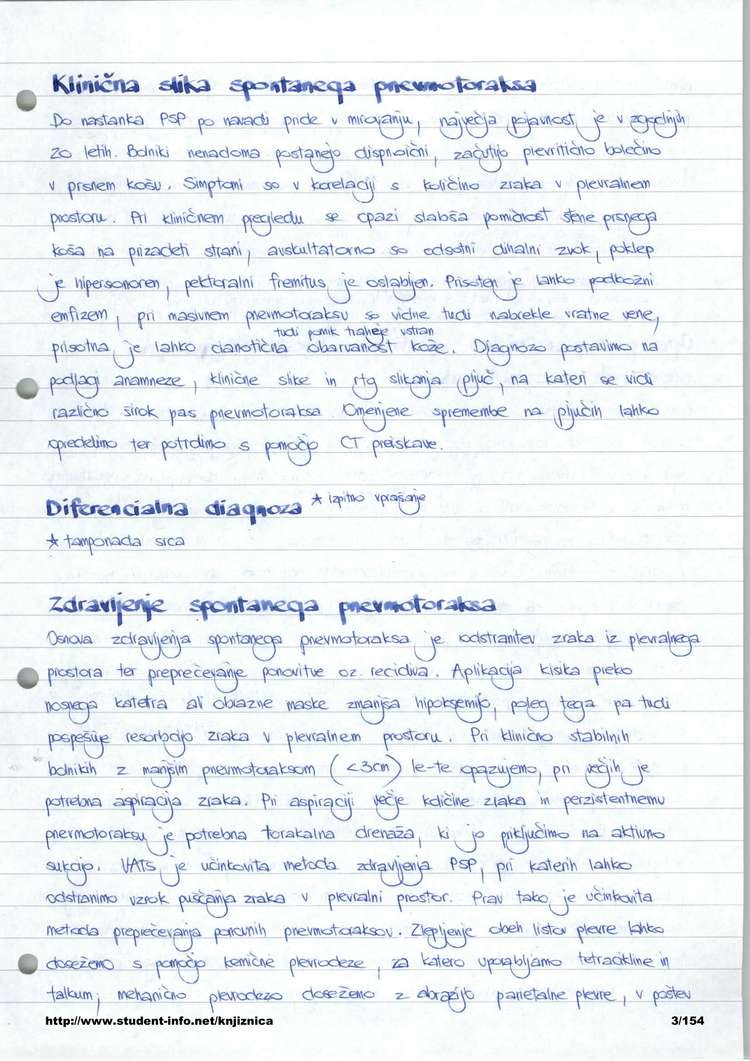 Klinična slika spontanega pnevmotoraksa
Do nastanka PSP po navadi pride v mirovanju, največja pojavnost je v zgodnjih
20 letih. Bolniki nenadoma postanejo dispnoični, začutijo plevritično bolečino
v prsnem košu. Simptomi so v korelaciji s količino zraka v plevralnem
prostoru. Pri kliničnem pregledu se opazi slabša pomičnost stene prsnega
koša na prizadeti strani, avskultatorno so odsotni dihalni zvok, poklep
je hipersonoren, pektoralni fremitus je oslabljen. Prisoten je lahko podkožni
emfizem, pri masivnem pnevmotoraksu so vidne tudi nabrekle vratne vene,
tudi pomik traheje vstran
prisotna je lahko cianotična obarvanost kože. Diagnozo postavimo na
podlagi anamneze, klinične slike in rtg slikanja pljuč, na kateri se vidi
različno širok pas pnevmotoraksa. Omenjene spremembe na pljučih lahko
opredelimo ter potrdimo s pomočjo CT preiskave.
Diferencialna diagnoza * izpitno vprašanje
* tamponada srca
Zdravljenje spontanega pnevmotoraksa
Osnova zdravljenja spontanega pnevmotoraksa je odstranitev zraka iz plevralnega
prostora ter preprečevanje ponovitve oz. recidiva. Aplikacija kisika preko
nosnega katetra ali obrazne maske zmanjša hipoksemijo, poleg tega pa tudi
pospešuje resorbcijo zraka v plevralnem prostoru. Pri klinično stabilnih
bolnikih z manjšim pnevmotoraksom (<3cm) le-te opazujemo, pri večjih je
potrebna aspiracija zraka. Pri aspiraciji večje količine zraka in perzistentnemu
pnevmotoraksu je potrebna torakalna drenaža, ki jo priključimo na aktivno
sukcijo. VATS je učinkovita metoda zdravljenja PSP, pri katerih lahko
odstranimo vzrok puščanja zraka v plevralni prostor. Prav tako je učinkovita
metoda preprečevanja ponovnih pnevmotoraksov. Zlepljenje obeh listov plevre lahko
dosežemo s pomočjo kemične plevrodeze, za katero uporabljamo tetracikline in
talkum; mehanično plevrodezo dosežemo z abrazijo parietalne plevre, v poštev
http://www.student-info.net/knjiznica 3/154